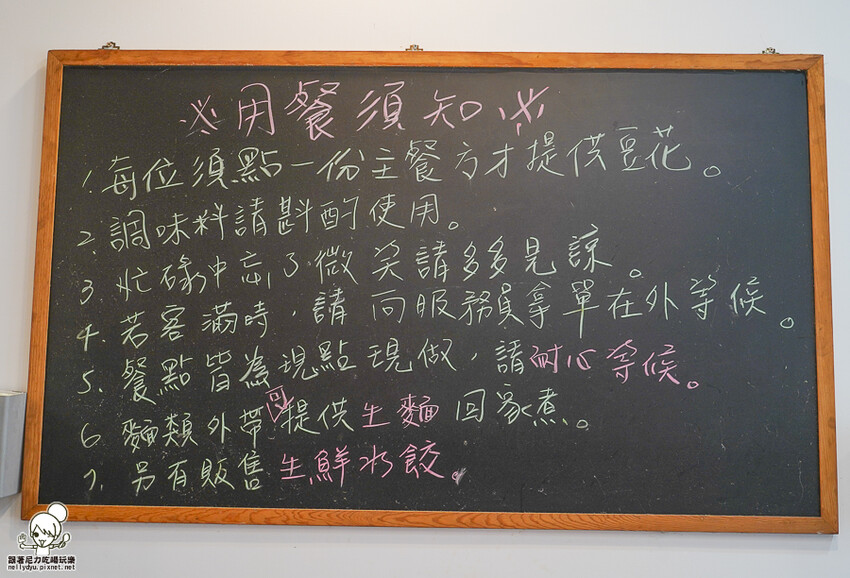 ※用餐須知※
1.每位須點一份主餐方才提供豆花。
2.調味料請斟酌使用。
3 忙碌中忘了微笑請多多見諒。
4.若客滿時,請向服務員拿單在外等候。
5.餐點皆為現點現做,請耐心等候。
6.麵類外帶可提供生麵回家煮。
7.另有販售生鮮水餃。
跟著尼力吃喝玩樂
nellydyu.pixnet.net